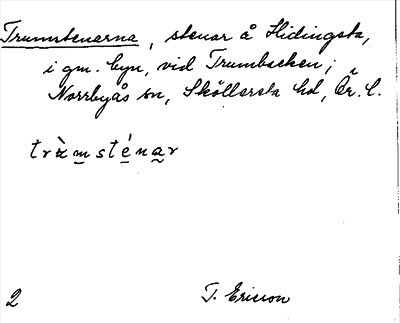 Trumstenarna, stenar å Hidingsta,
i gm. byn, vid Trumbacken;
Norrbyås sn, Sköllersta hd, Ör. l.
trùmsténar
2
T. Ericson